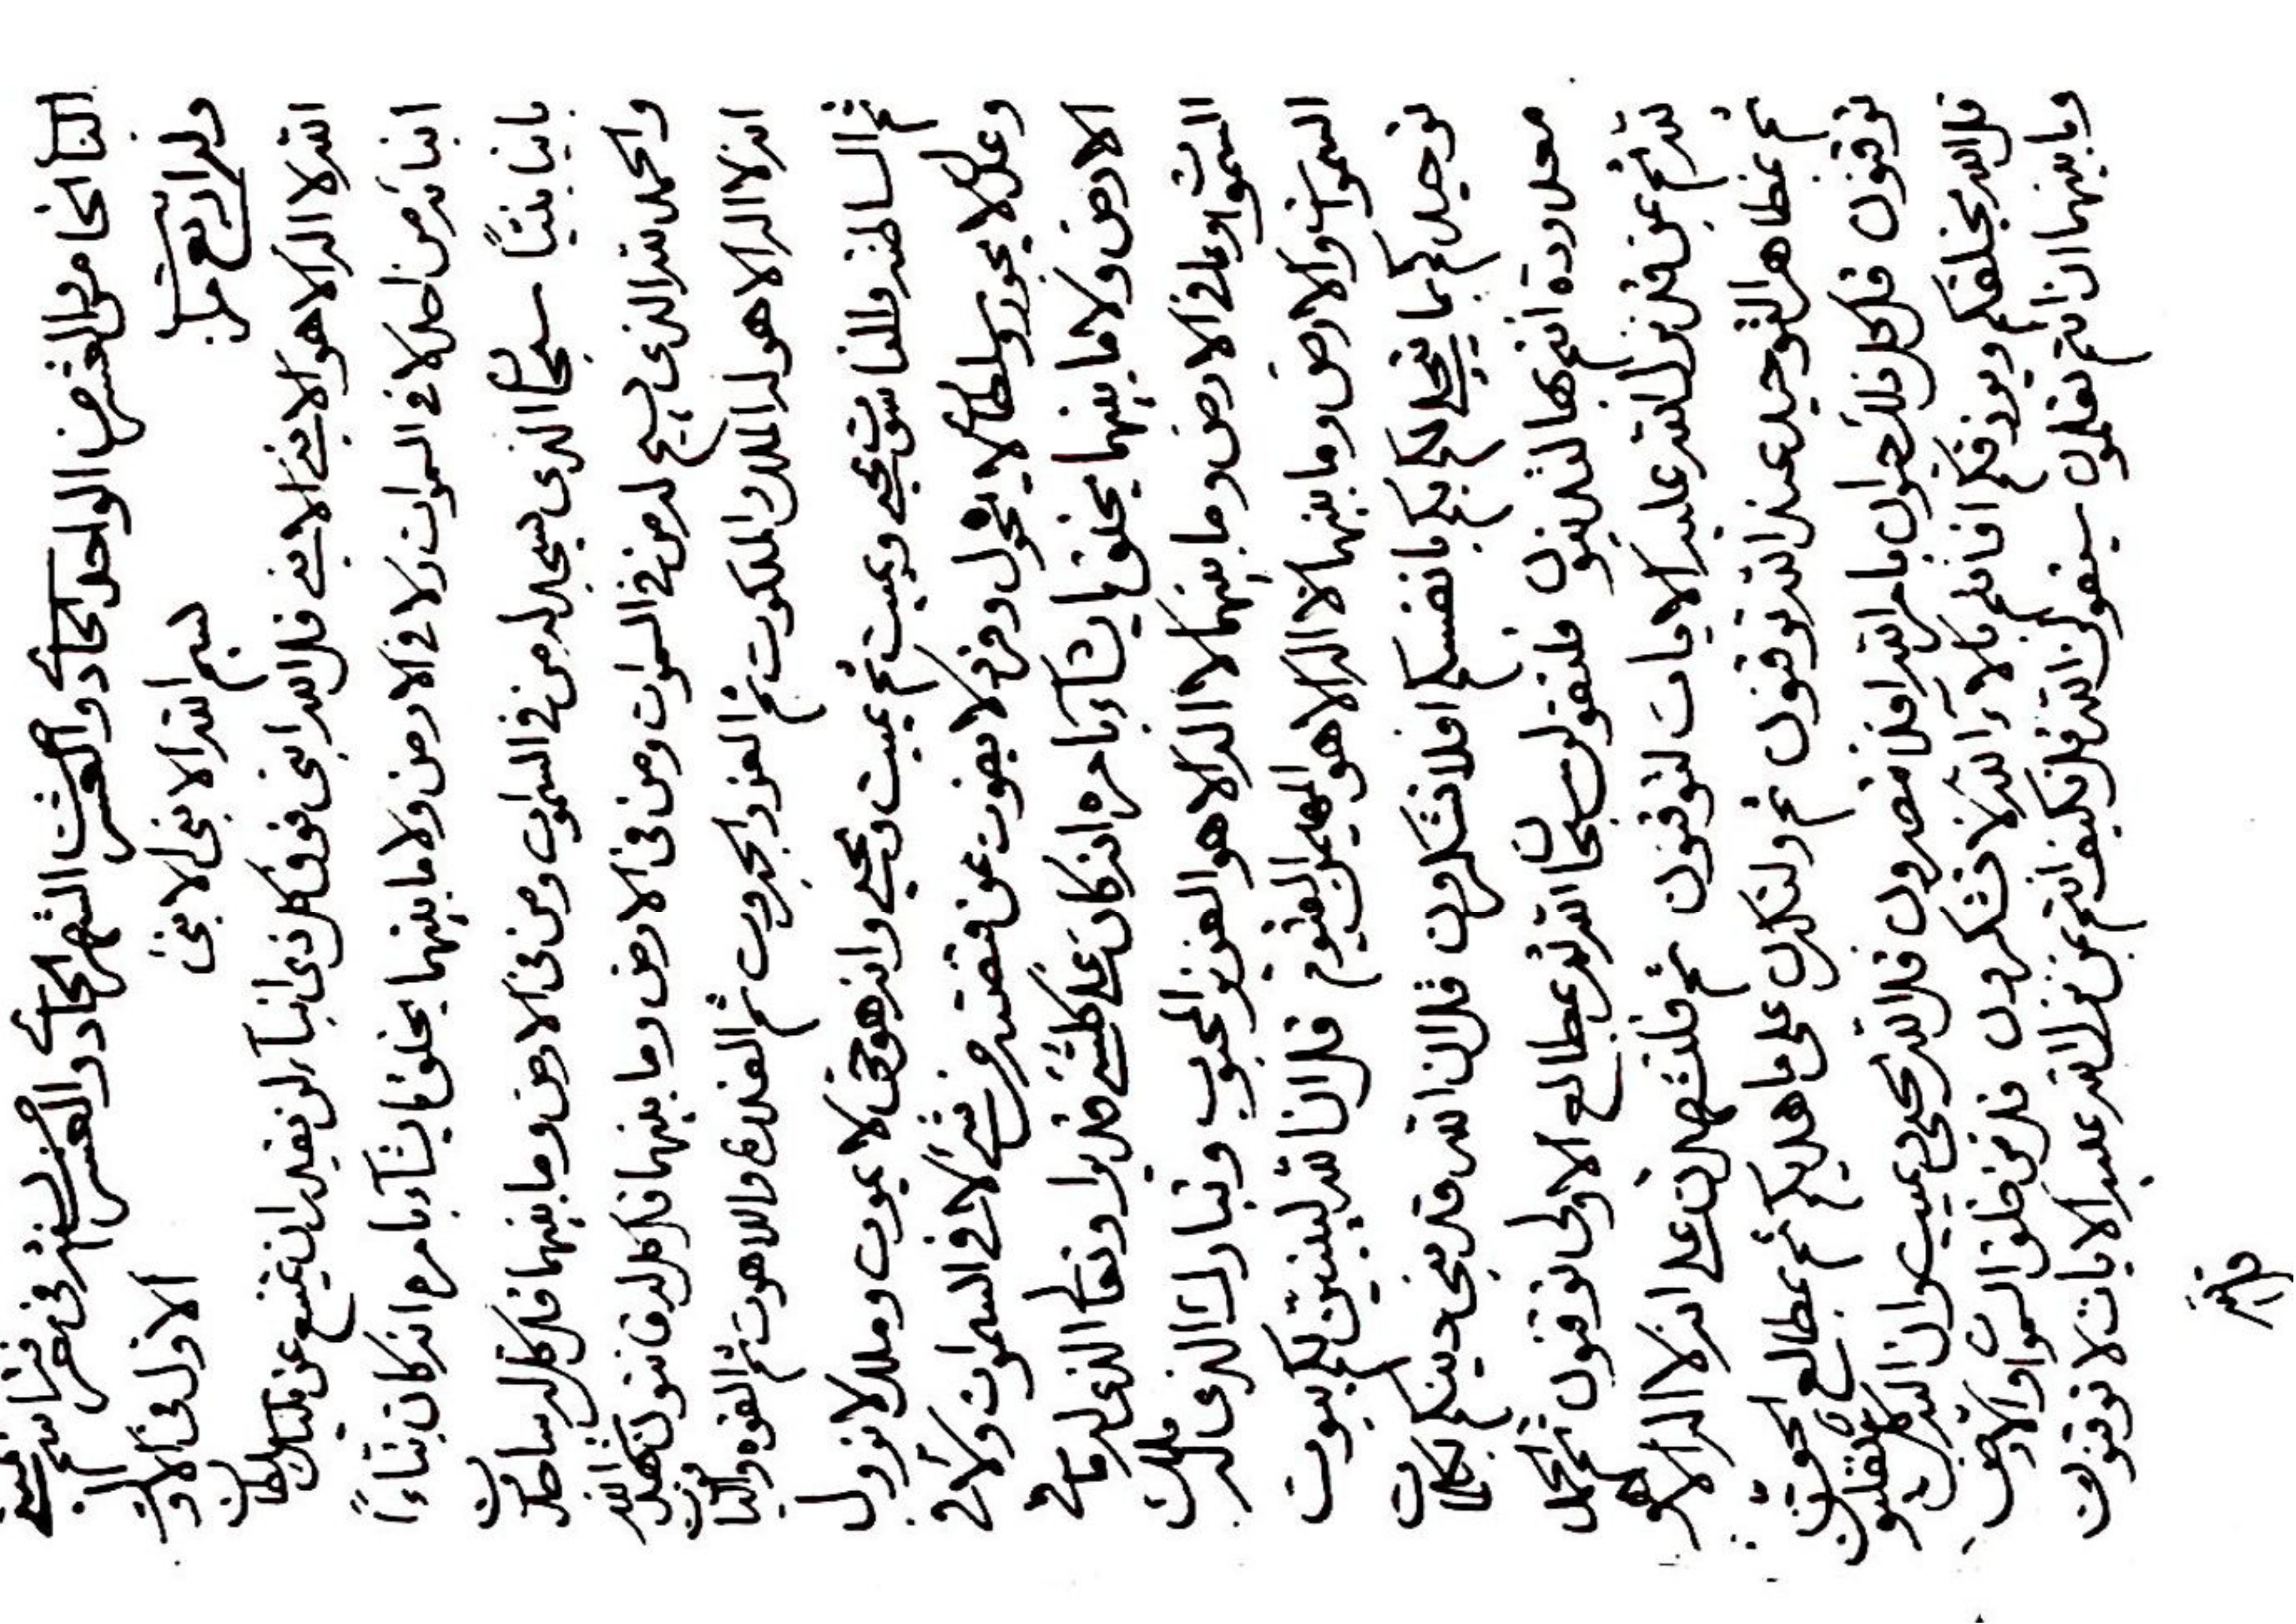 الباب الخامس والعشر من الواحد الحاد والعشر من الشهر الحاد والعشر من السنة فى معرفة اسم
وله اربع مراتب الاول فى الاول
بسم الله الابنى الابنى
الله لا اله الا هو الابنى الابنى قل الله ابنى فوق كل ذى ابناء لن يقدر ان يمتنع عن مليك سلطان
ابنائه من احد لا فى السموات ولا فى الارض ولا ما بينهما يخلق ما يشاء بامره انه كان بناء
بانيا بنيا سبحان الذى يسجد له من فى السموات ومن فى الارض وما بينهما قل كل له ساجدون
والحمد لله الذى يسبح له من فى السموات ومن فى الارض وما بينهما قل كل له قانتون شهد الله
انه لا اله الا هو له الملك والملكوت ثم العز والجبروت ثم القدرة واللاهوت ثم القوة والياقوت
ثم السلطنة والناسوت يحيى ويميت ثم يميت ويحيى وانه هو حى لا يموت وملك لا يزول
وعدل لا يجور وسلطان لا يحول وفرد لا يفوت عن قبضته من شىء لا فى السموات ولا فى
الارض ولا ما بينهما يخلق ما يشاء بامره انه كان على كل شىء قديرا وتعالى الذى له ما فى
السموات وما فى الارض وما بينهما لا اله الا هو العزيز المحبوب وتبارك الذى له ملك
السموات والارض وما بينهما لا اله الا هو المهيمن القيوم قل ان الله ليبنين لكم بيوت
توحيدكم بما يتجلى لكم بكم بانفسكم افلا تشكرون قل ان الله قد بنى دينكم بكلمات
معدودة انتم بها لتدينون فلتقولن سبحان الله ثم بمطالع الاولى توقنون ثم الحمد
لله ثم عن قد نزل الله عليه الايات لتوقنون ثم فلتشهدن على انه لا اله الا هو
ثم بمظاهر التوحيد عند الله توقنون ثم ولتكبرن على ما هديكم ثم بمطالع الحق
توقنون قل كل ذلك حول بامر الله افلا تبصرون قل الله يحيى ويميت وان اليه كل لينقلبون
قل الله يخلقكم ويرزقكم افانتم بالاء الله لا تشكرون قل من خلق السموات والارض
وما بينهما ان انتم تعلمون سيقولن الله قل فكيف انتم بمن نزل الله عليه الايات لا توقنون